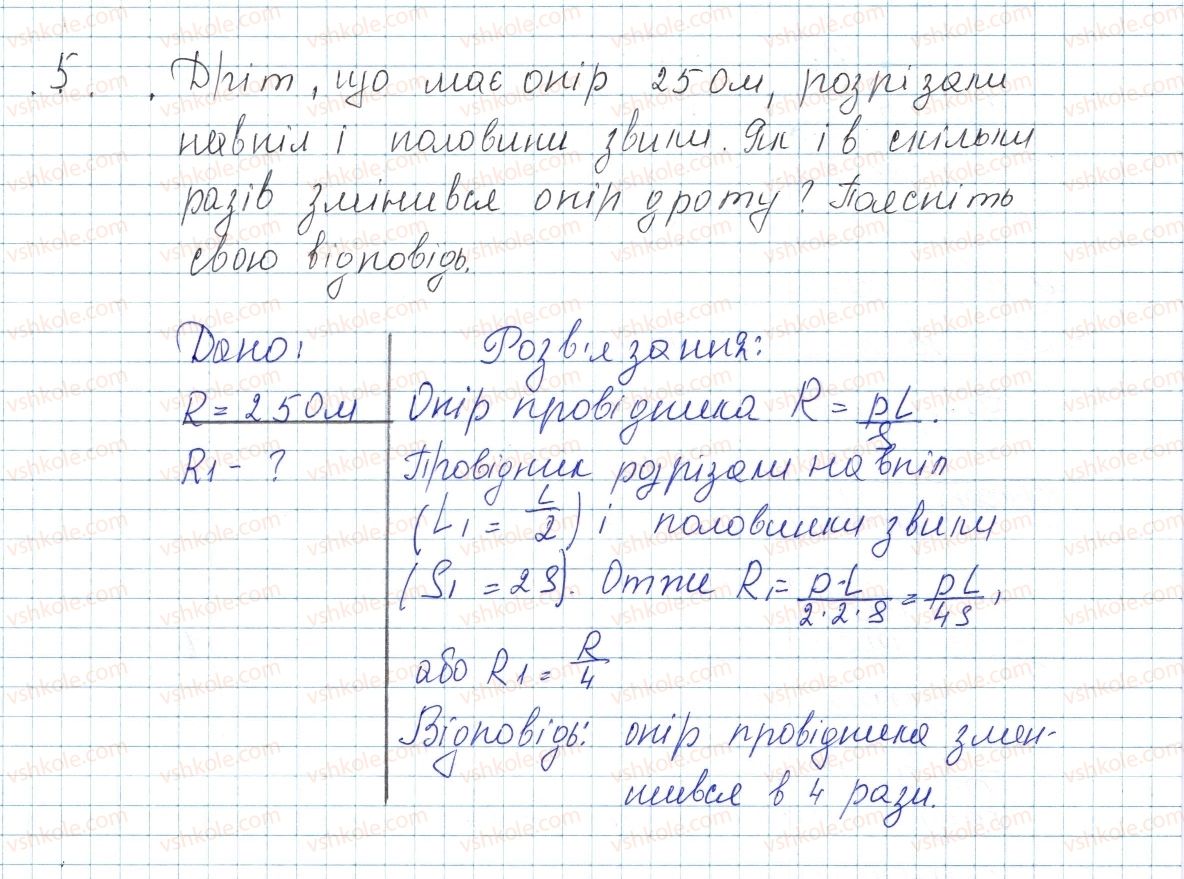 5. Дріт, що має опір 25 Ом, розрізали
навпіл і половини звили. Як і в скільки
разів змінився опір дроту? Поясніть
свою відповідь.
Дано: Розв'язання:
R = 25 Ом Опір провідника R = ρL/S.
R1 - ? Провідник розрізали навпіл
(L1 = L/2) і половинки звили
(S1 = 2S). Отже R1 = ρ·L/2·2·S = ρL/4S,
або R1 = R/4
Відповідь: опір провідника змен-
шився в 4 рази.
vshkole.com